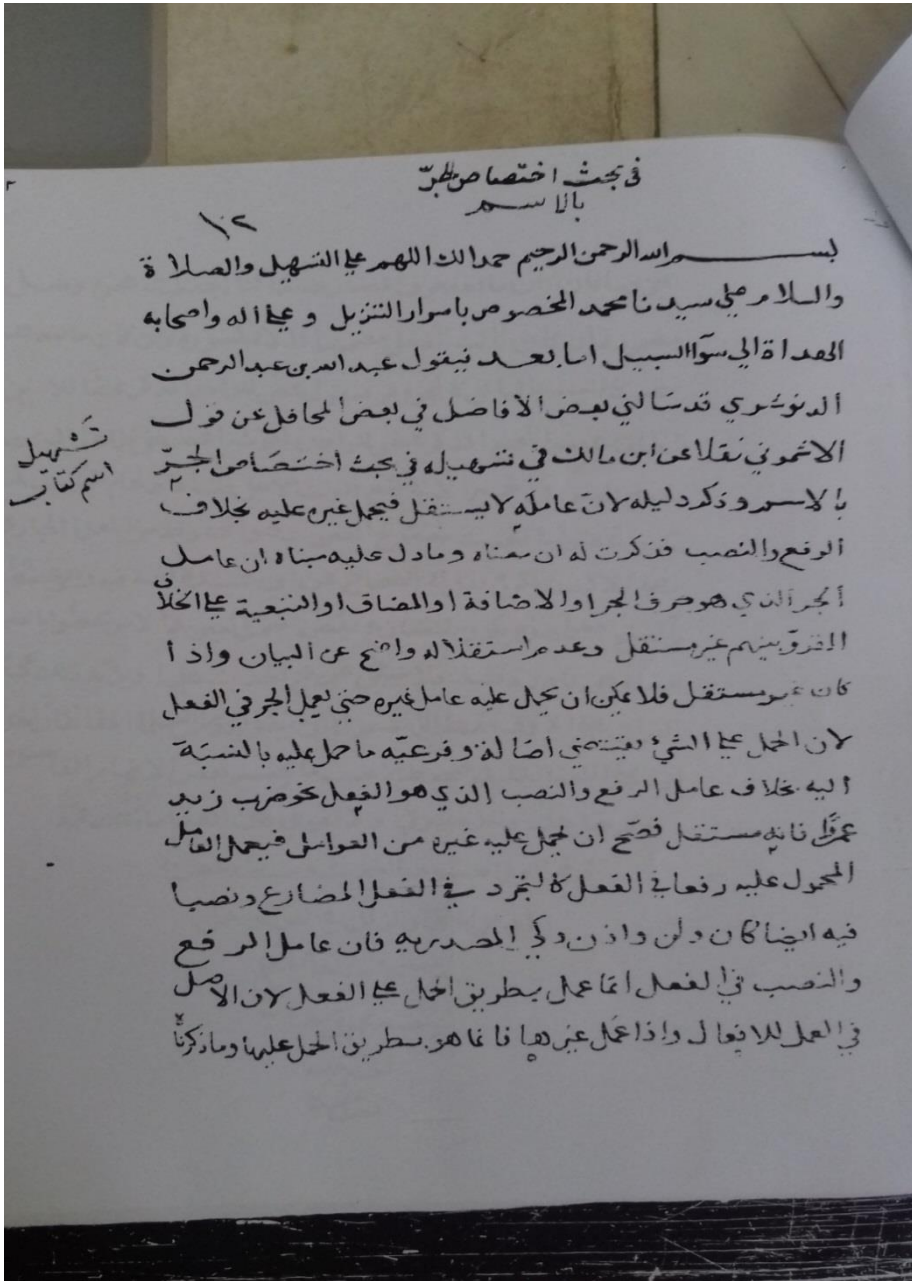 في بحث اختصاص الجرّ
بالاسم
١٠٢
بسم الله الرحمن الرحيم حمدا لك اللهم على التسهيل والصلاة
والسلام على سيدنا محمد المخصوص باسرار التنزيل وعلى اله واصحابه
الهداة الي سوآ السبيل اما بعد فيقول عبد الله بن عبد الرحمن
الدنوشري قد سالني بعض الافاضل في بعض المحافل عن قول
الاشموني نقلا عن ابن مالك في تسهيله في بحث اختصاص الجرّ
بالاسم وذكر دليله لان عامله لا يستقل فيحمل غيره عليه بخلاف
الرفع والنصب فذكرت له ان معناه وما دل عليه مبناه ان عامل
الجر الذي هو حرف الجر او الاضافة او المضاف او التبعية على الخلاف
بينهم غير مستقل وعدم استقلاله واضح عن البيان واذا
كان غير مستقل فلا يمكن ان يحمل عليه عامل غيره حتي يعمل الجر في الفعل
لان الحمل على الشيء يقتضي اصالة وفرعيّه ما حمل عليه بالنسبة
اليه بخلاف عامل الرفع والنصب الذي هو الفعل نحو ضرب زيد
عمرًا فانه مستقل فصح ان يحمل عليه غيره من العوامل فيعمل العامل
المحمول عليه رفعا في الفعل كالتجرد في الفعل المضارع ونصبا
فيه ايضا كان ولن واذن وكي المصدريه فان عامل الرفع
والنصب في الفعل انما عمل بطريق الحمل على الفعل لان الاصل
في العمل للافعال واذا عمل غيرها فانما هو بطريق الحمل عليها وما ذكرناه
تسهيل
اسم كتاب